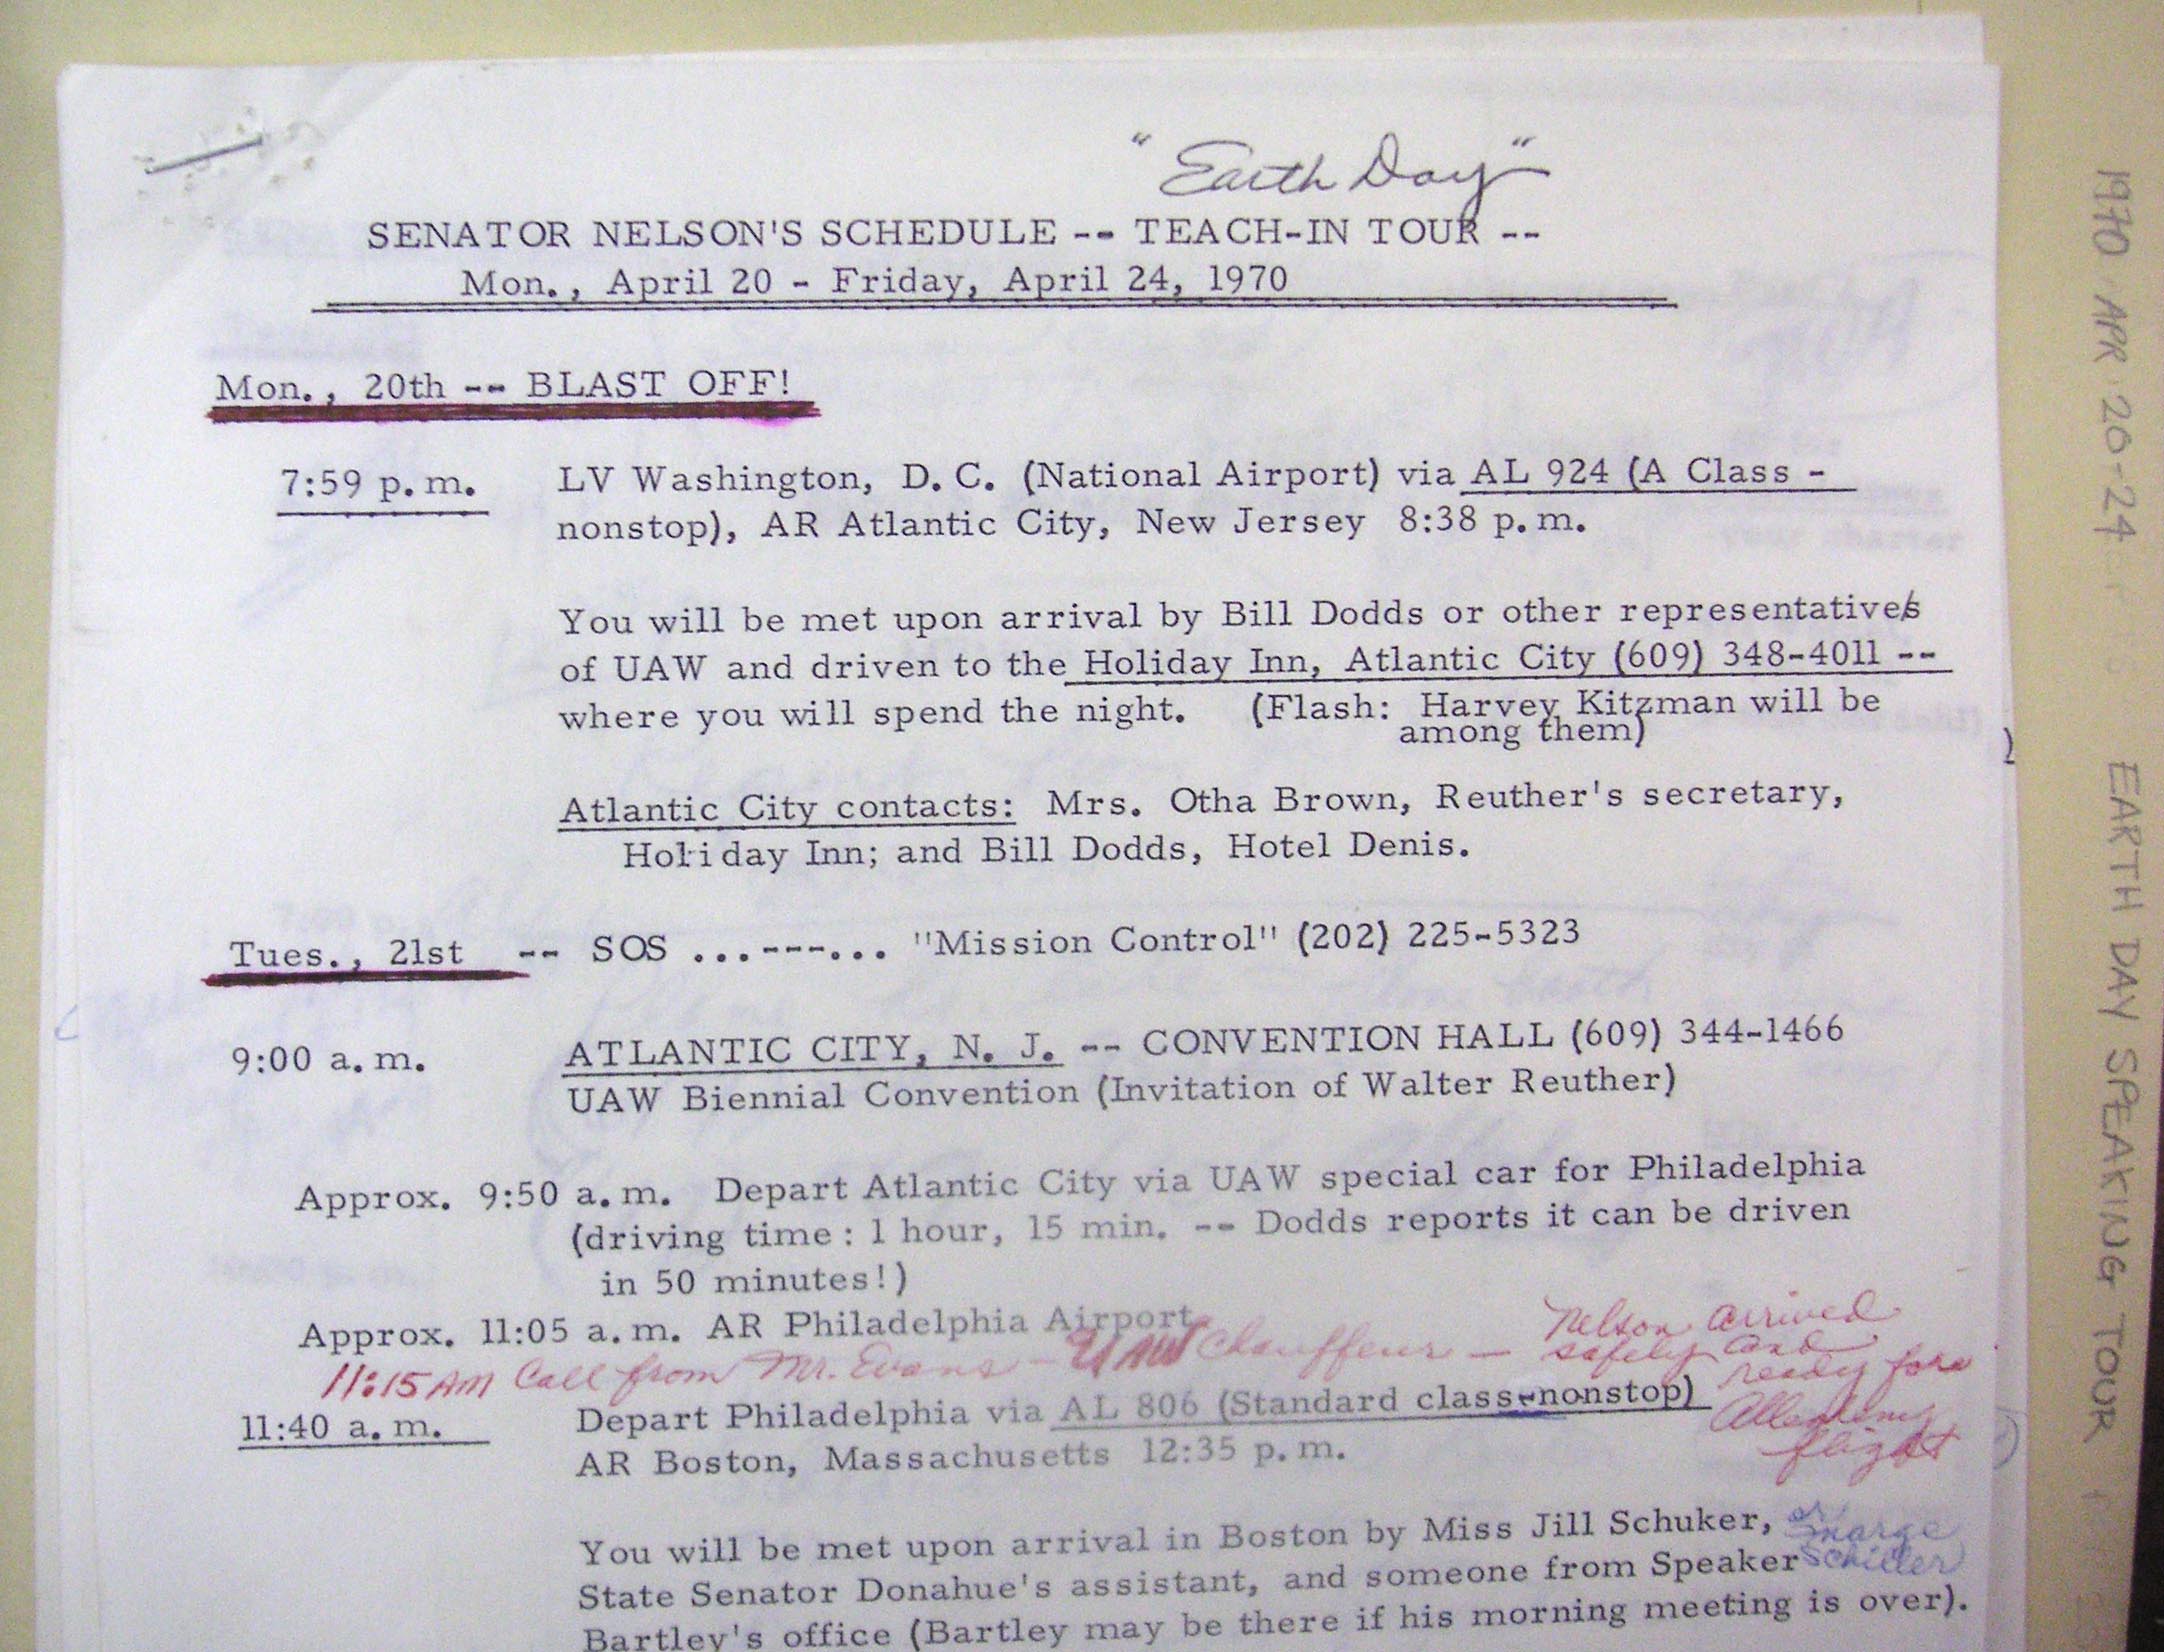 "Earth Day"
SENATOR NELSON'S SCHEDULE -- TEACH-IN TOUR --
Mon., April 20 - Friday, April 24, 1970
Mon., 20th -- BLAST OFF!
7:59 p.m. LV Washington, D.C. (National Airport) via AL 924 (A Class -
nonstop), AR Atlantic City, New Jersey 8:38 p.m.
You will be met upon arrival by Bill Dodds or other representatives
of UAW and driven to the Holiday Inn, Atlantic City (609) 348-4011 --
where you will spend the night. (Flash: Harvey Kitzman will be
among them)
Atlantic City contacts: Mrs. Otha Brown, Reuther's secretary,
Holiday Inn; and Bill Dodds, Hotel Denis.
Tues., 21st -- SOS ...---... "Mission Control" (202) 225-5323
9:00 a.m. ATLANTIC CITY, N.J. -- CONVENTION HALL (609) 344-1466
UAW Biennial Convention (Invitation of Walter Reuther)
Approx. 9:50 a.m. Depart Atlantic City via UAW special car for Philadelphia
(driving time: 1 hour, 15 min. -- Dodds reports it can be driven
in 50 minutes!)
Approx. 11:05 a.m. AR Philadelphia Airport
11:15 AM Call from Mr. Evans - UAW Chauffeur - Nelson arrived
safely and
ready for
Allegheny
flight
11:40 a.m. Depart Philadelphia via AL 806 (Standard class-nonstop)
AR Boston, Massachusetts 12:35 p.m.
You will be met upon arrival in Boston by Miss Jill Schuker, or Marge
Schiller
State Senator Donahue's assistant, and someone from Speaker
Bartley's office (Bartley may be there if his morning meeting is over).
1970 APR 20-24 EARTH DAY SPEAKING TOUR